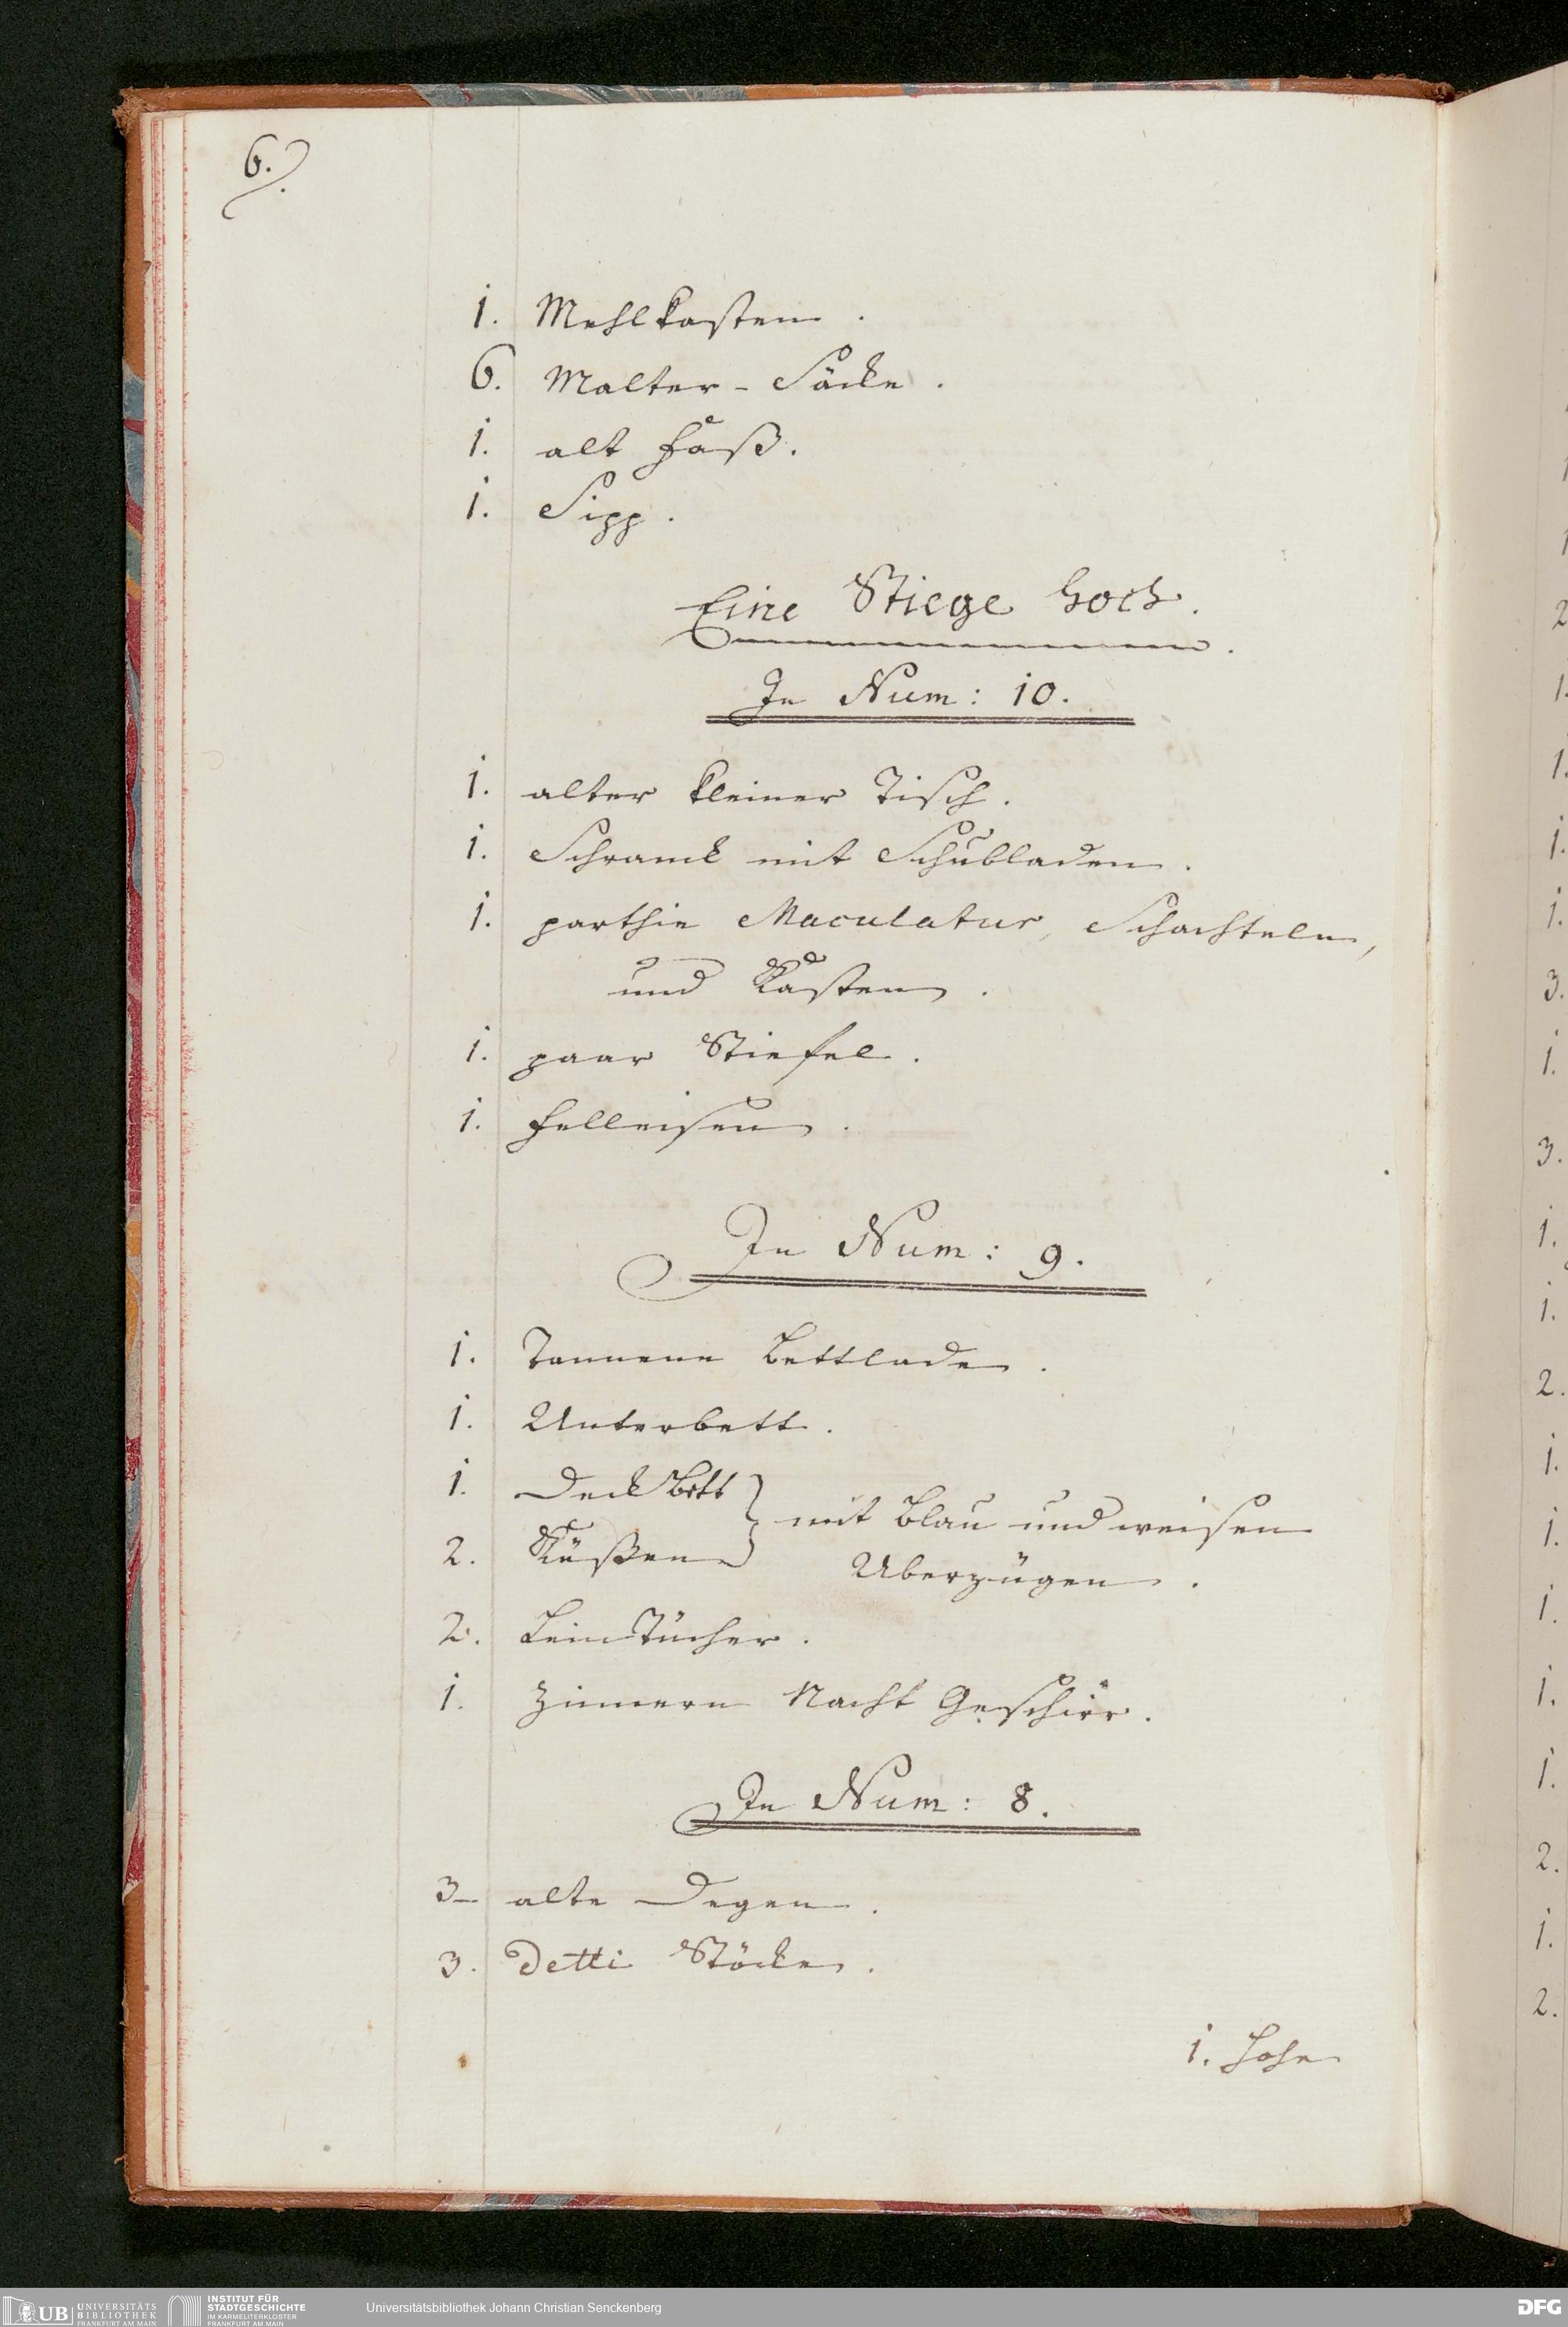 6.
1. Mehlkasten.
6. Malter-Säcke.
1. alt Faß.
1. Sipp.
Eine Stiege hoch.
In Num: 10.
1. alter kleiner Tisch.
1. Schranck mit Schubladen.
1. parthie Maculatur, Schachteln,
und Kasten.
1. paar Stiefel.
1. Felleisen.
In Num: 9.
1. Tannene Bettlade.
1. Unterbett.
1. Deck Bett } mit blau und weisen
2. Küßen Uberzügen.
2. Leim Tücher.
1. Zinnern Nacht Geschirr.
In Num: 8.
3- alte Degen.
3. Detti Stöcke.
1. Hohe
UB UNIVERSITÄTS
BIBLIOTHEK
FRANKFURT AM MAIN
INSTITUT FÜR
STADTGESCHICHTE
IM KARMELITERKLOSTER
FRANKFURT AM MAIN
Universitätsbibliothek Johann Christian Senckenberg
DFG